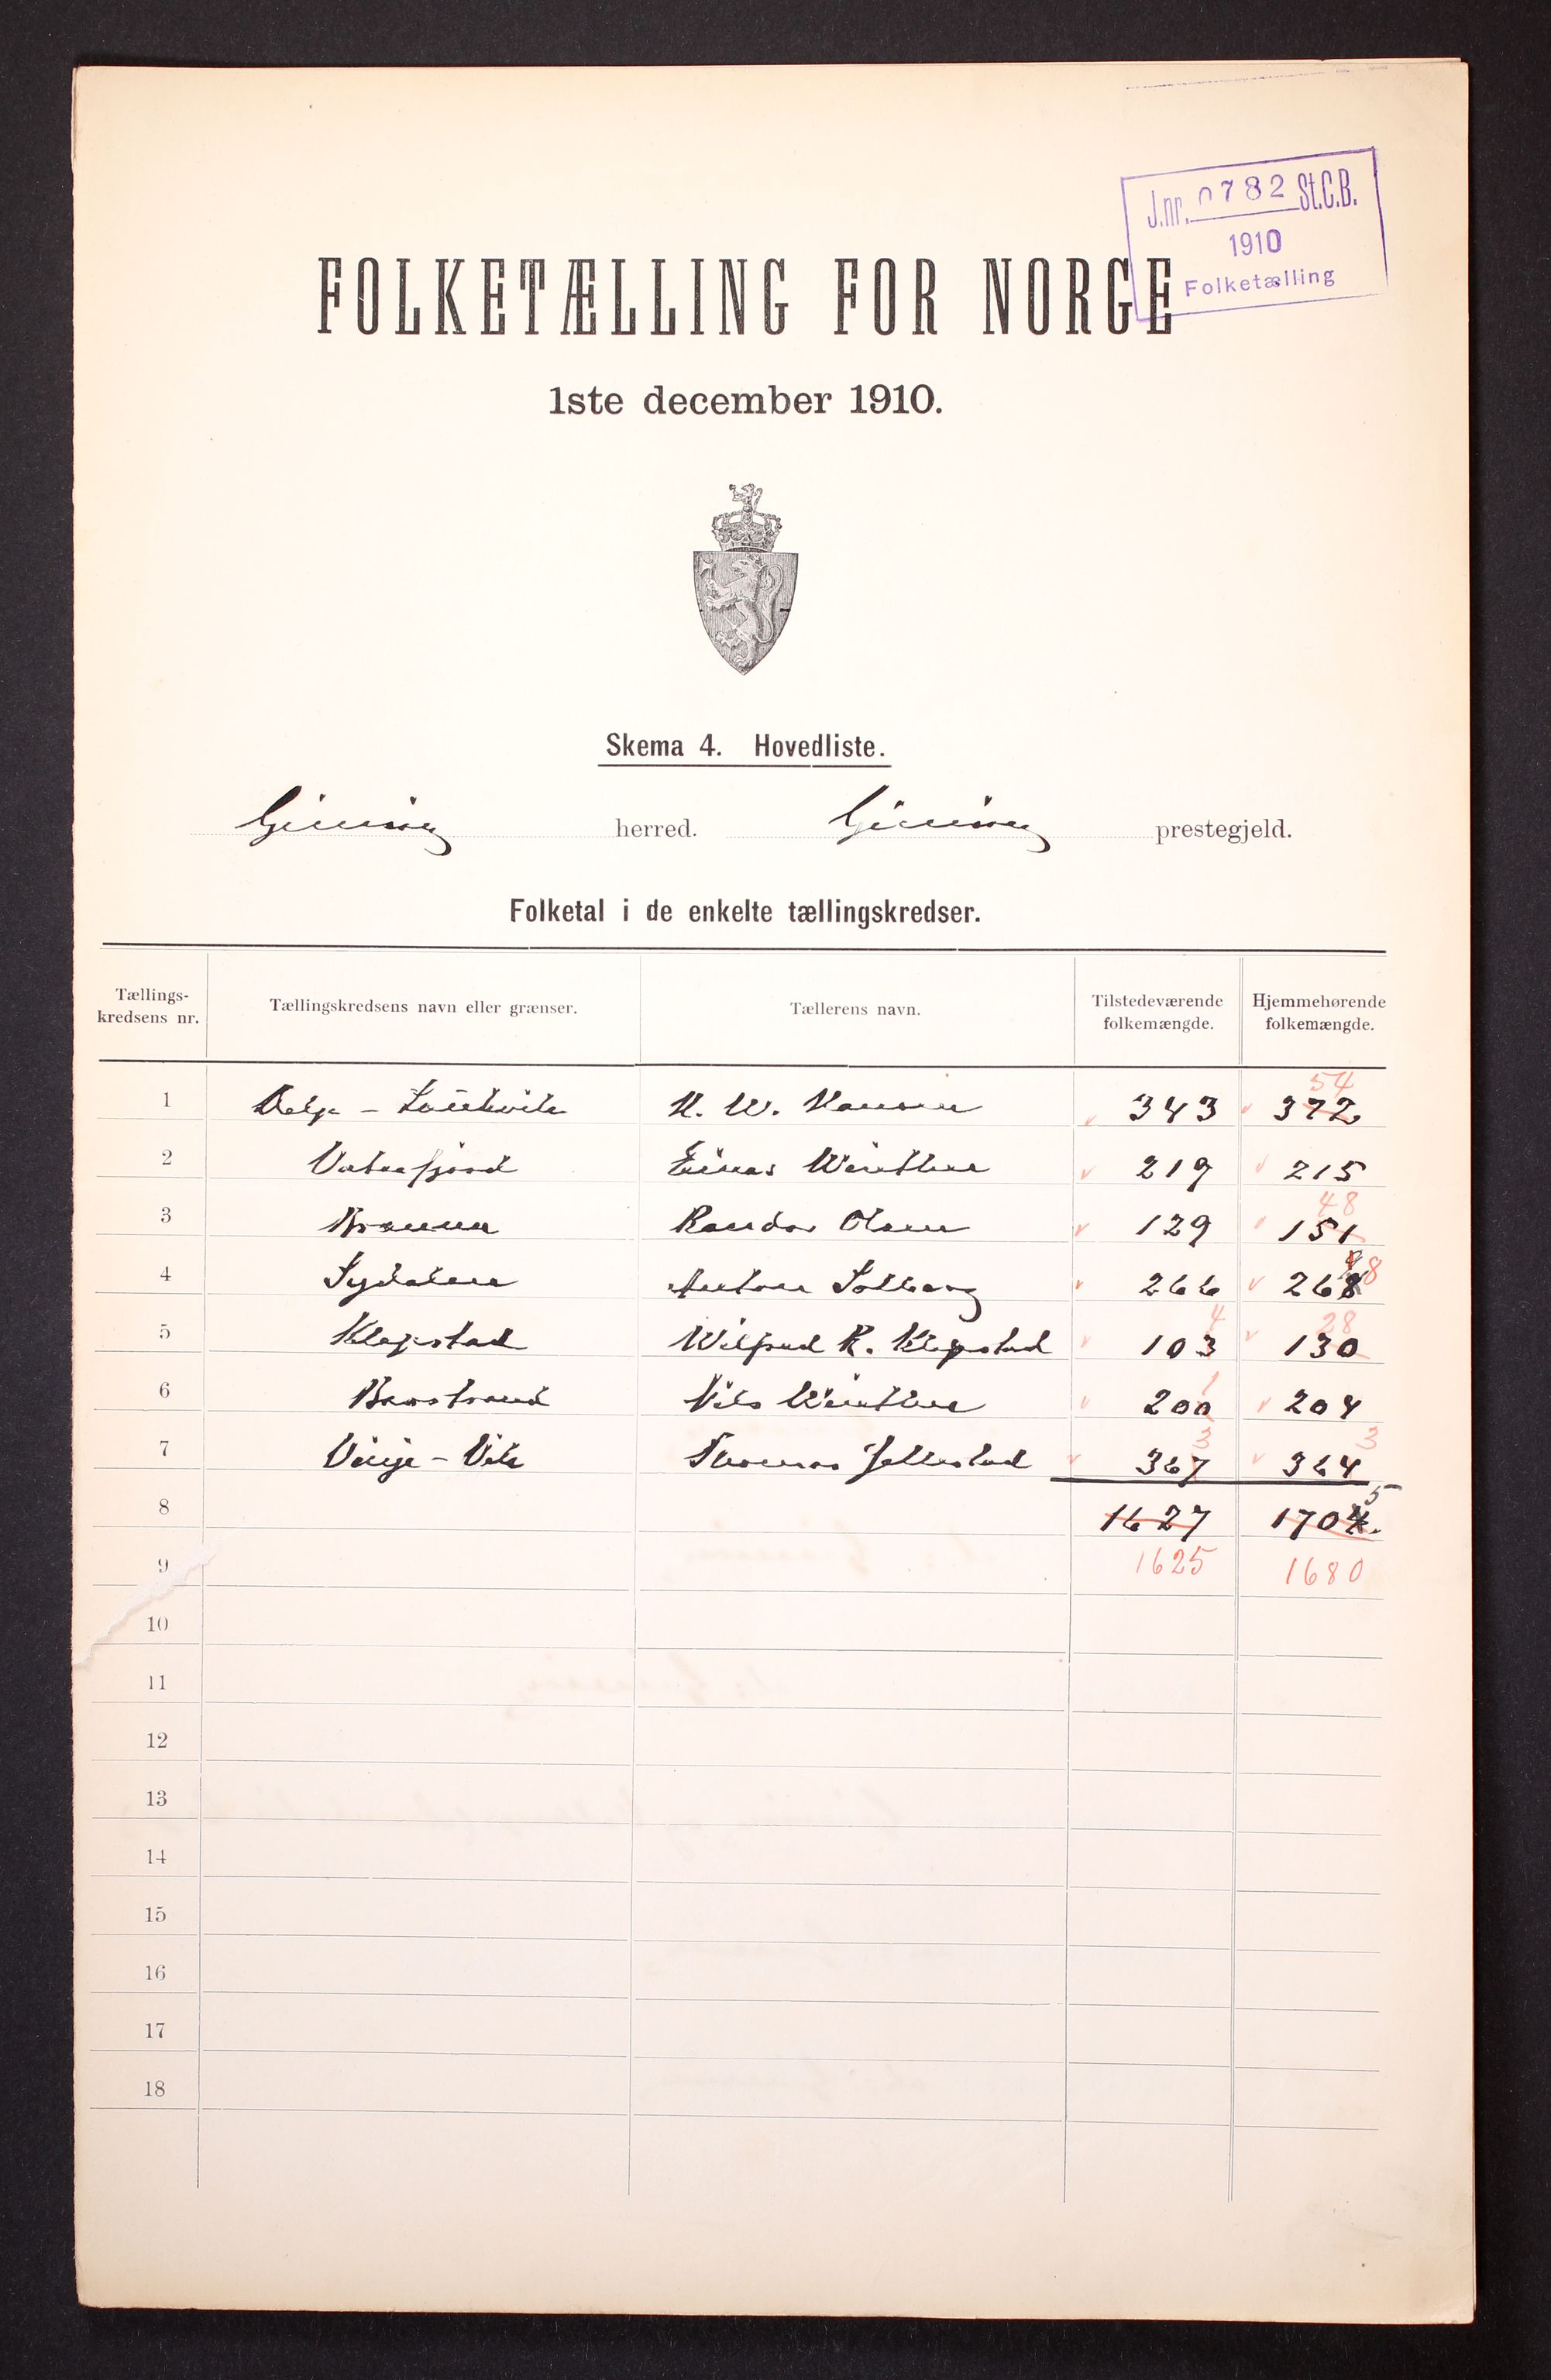 J.nr. 0782 St.C.B.
1910
Folketælling
FOLKETÆLLING FOR NORGE
1ste december 1910.
Skema 4. Hovedliste.
Gimsøy herred. Gimsøy prestegjeld.
Folketal i de enkelte tællingskredser.
Tællings-kredsens nr. Tællingskredsens navn eller grænser. Tællerens navn. Tilstedeværende folkemængde. Hjemmehørende folkemængde.
54
1 H. W. Hansen 343 372
2 Vaterfjord Einar Winther 219 215
48
3 Brenna Randor Olsen 129 151
8
4 Sydalen Anton Solberg 266 268
4 28
5 Klepstad Wilfred R. Klepstad 103 130
1
6 Barstrand Nils Winther 200 204
3 3
7 Vinje - Vik Thomas Jellestad 367 364
5
8 1627 1704.
9 1625 1680
10
11
12
13
14
15
16
17
18